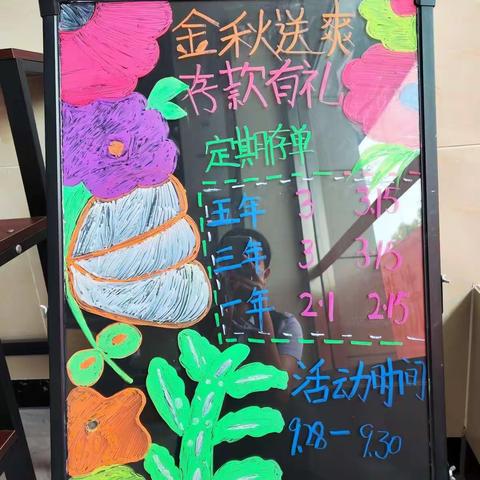 金秋送爽
存款有礼
定期存单
五年 3 3.15
三年 3 3.15
一年 2.1 2.15
活动时间
9.28-9.30